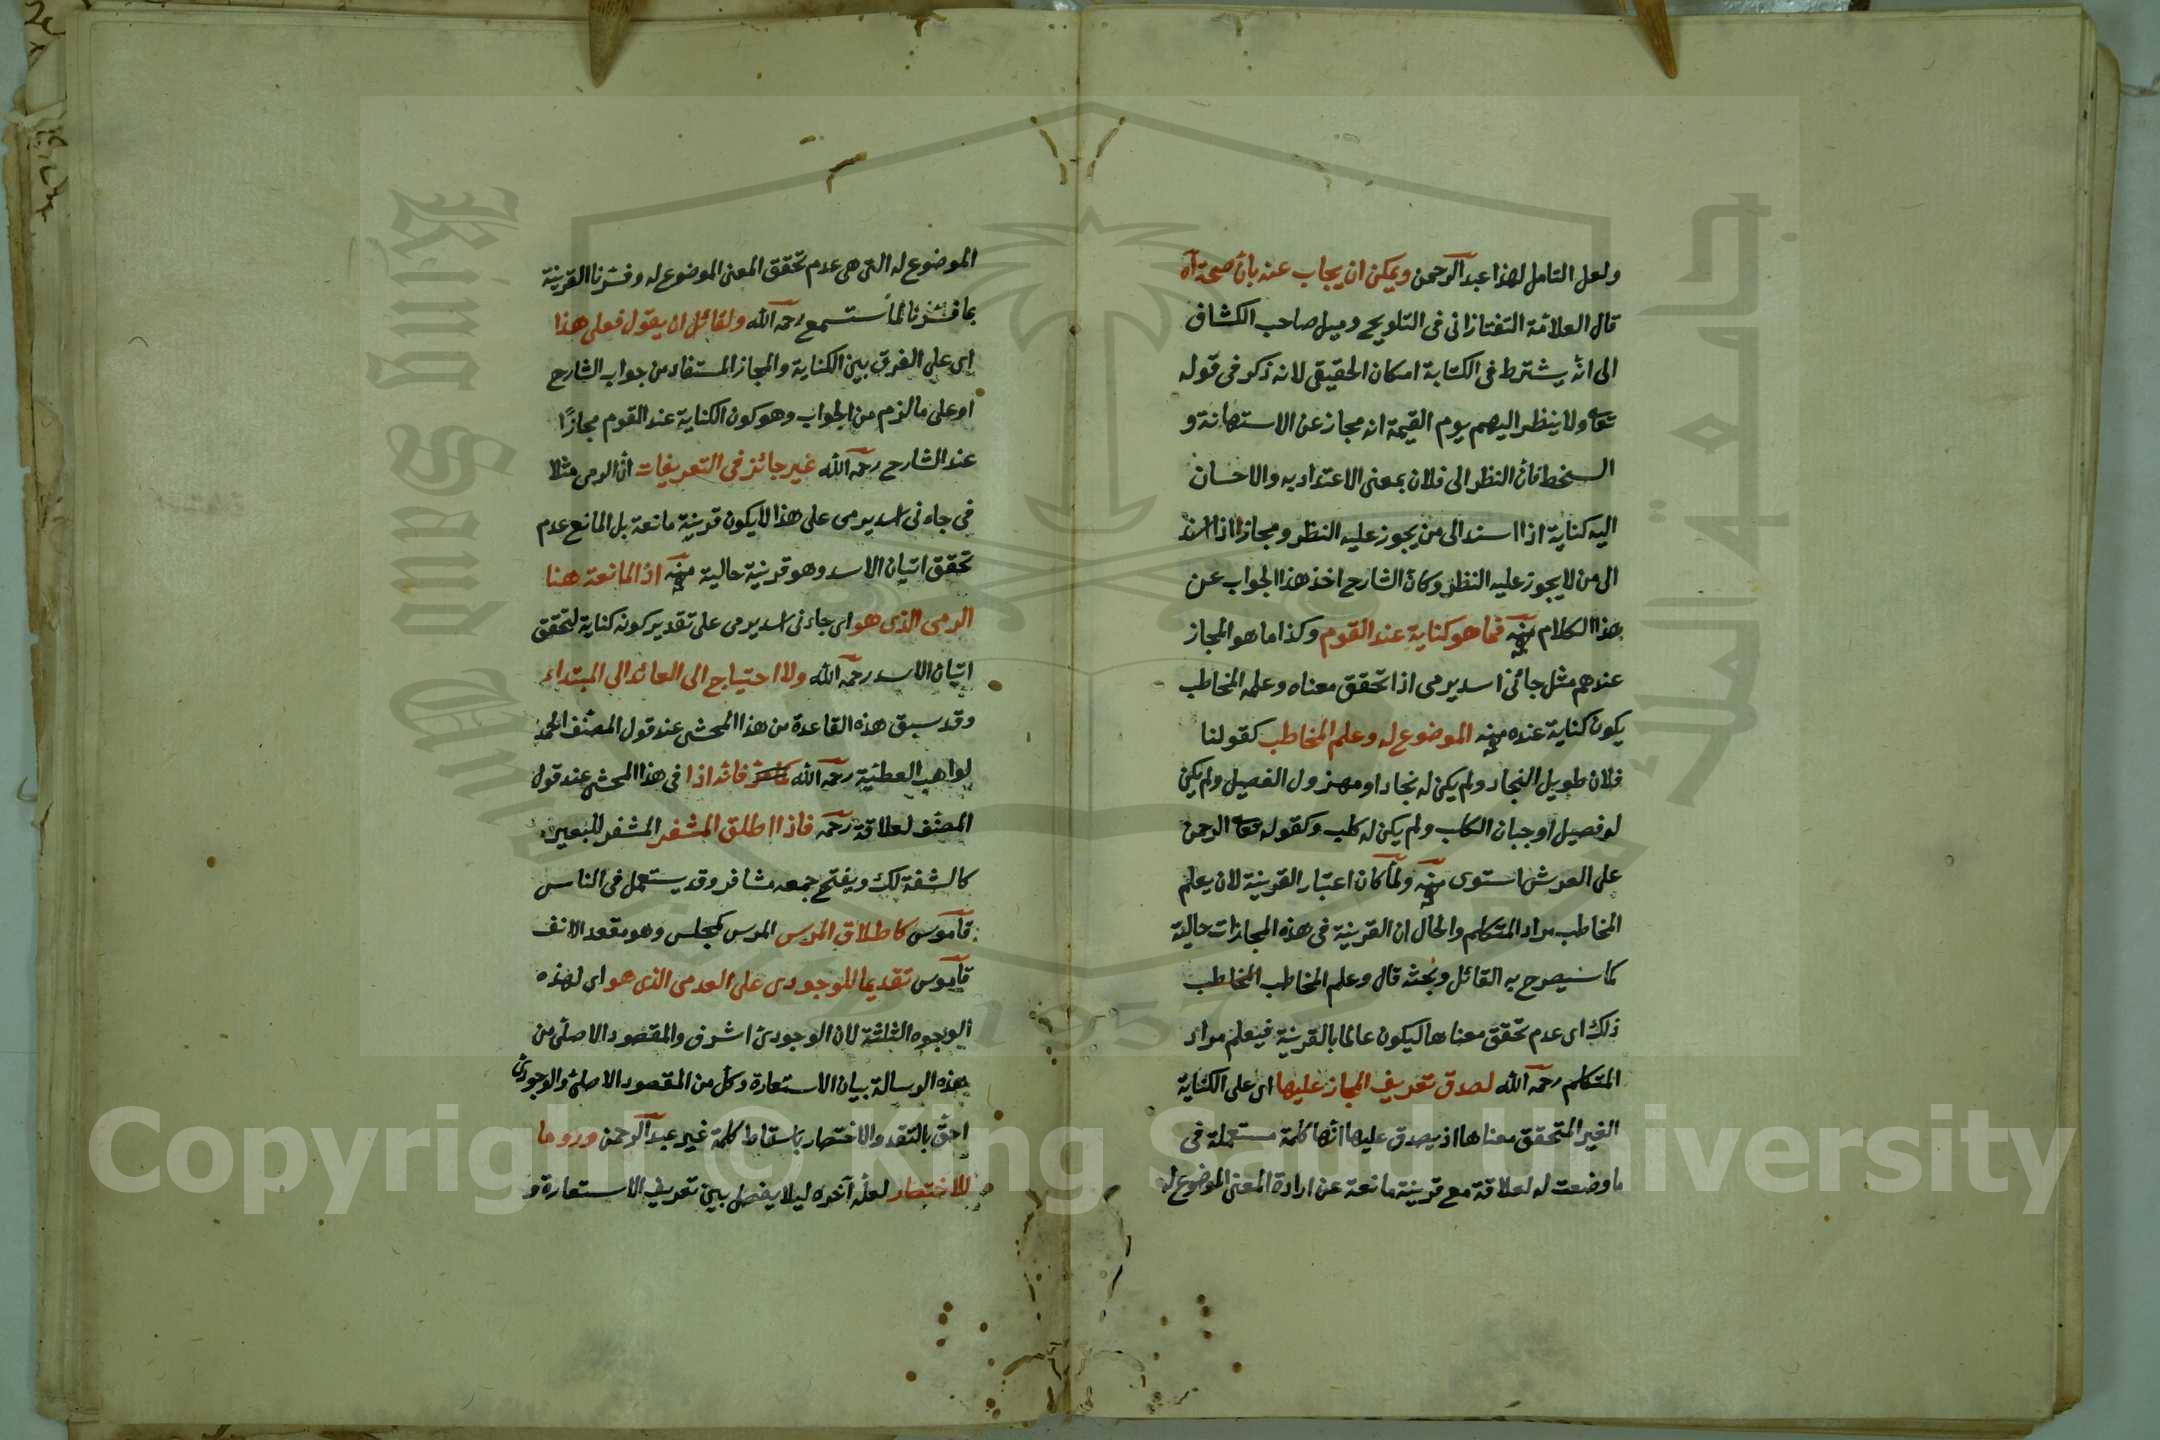 ولعل التامل لهذا عبد الرحمن ويمكن ان يجاب عنه بان صحة اه
قال العلامة التفتازانى فى التلويح وميل صاحب الكشاف
الى انه يشترط فى الكناية امكان الحقيقى لانه ذكر فى قوله
تعا ولا ينظر اليهم يوم القيمة انه مجاز عن الاستهانة و
السخط فان النظر الى فلان بمعنى الاعتداد به والاحسان
اليه كناية اذا اسند الى من يجوز عليه النظر ومجاز اذا اسند
الى من لا يجوز عليه النظر وكان الشارح اخذ هذا الجواب عن
هذا الكلام منه فما هو كناية عند القوم وكذا ما هو المجاز
عندهم مثل جائنى اسد يرمى اذا تحقق معناه وعلمه المخاطب
يكون كناية عنده منه الموضوع له وعلم المخاطب كقولنا
فلان طويل النجاد ولم يكن له نجاد او مهزول الفصيل ولم يكن
له فصيل او جبان الكلب ولم يكن له كلب وكقوله تعا الرحمن
على العرش استوى منه ولما كان اعتبار القرينة لان يعلم
المخاطب مراد المتكلم والحال ان القرينة فى هذه المجازات حالية
كما سيصرح به القائل وبحثه قال وعلم المخاطب المخاطب
ذلك اى عدم تحقق معناها ليكون عالما بالقرينة فيعلم مراد
المتكلم رحمه الله لصدق تعريف المجاز عليها اى على الكناية
الغير المتحقق معناها اذ يصدق عليها انها كلمة مستعملة فى
ما وضعت له لعلاقة مع قرينة مانعة عن ارادة المعنى الموضوع له
الموضوع له التى هى عدم تحقق المعنى الموضوع له وفسرنا القرينة
بما فسرنا لما ستسمع رحمه الله ولقائل ان يقول فعلى هذا
اى على الفرق بين الكناية والمجاز المستفاد من جواب الشارح
او على ما لزم من الجواب وهو كون الكناية عند القوم مجازا
عند الشارح رحمه الله غير جائز فى التعريفات ان الرمى مثلا
فى جاءنى اسد يرمى على هذا لا يكون قرينة مانعة بل المانع عدم
تحقق اتيان الاسد وهو قرينة حالية منه اذ المانعة هنا
الرمى الذى هو اى جاءنى اسد يرمى على تقدير كونه كناية لتحقق
اتيان الاسد رحمه الله ولا احتياج الى العائد الى المبتداء
وقد سبق هذه القاعدة من هذا المحشى عند قول المصنف الحمد
لواهب العطية رحمه الله فانه اذا فى هذا المحشى عند قول
المصنف لعلاقة رحمه فاذا اطلق المشفر المشفر للبعير
كالشفة لك ويفتح جمعه مشافر وقد يستعمل فى الناس
قاموس كاطلاق المرسن المرسن كمجلس وهو مقعد الانف
قاموس تقديما للوجودى على العدمى الذى هو اى لهذه
الوجوه الثلثة لان الوجودى اشرف والمقصود الاصلى من
هذه الرسالة بيان الاستعارة وكل من المقصود الاصلى والوجودى
احق بالتقد والاختصار باسقاط كلمة غير عبد الرحمن وروما
للاختصار لعله آخره ليلا يفصل بين تعريف الاستعارة و
King Saud University
جامعة الملك سعود
1957
Copyright © King Saud University